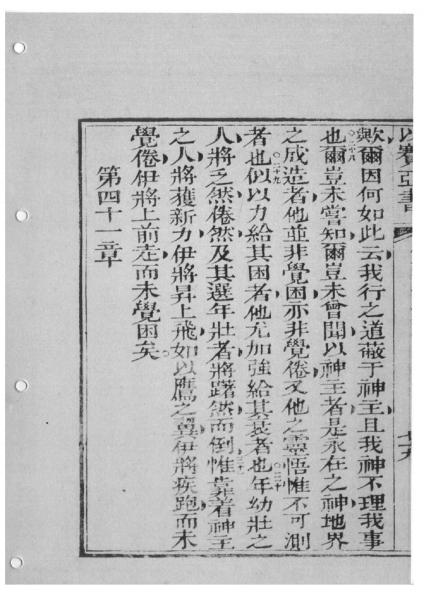 以賽亞書
歟爾因何如此云我行之道蔽于神主且我神不理我事
也爾豈未嘗知爾豈未曾聞以神主者是永在之神地界
之成造者他並非覺困亦非覺倦又他之靈悟惟不可測
者也似以力給其困者他尤加強給其者也年幼壯之
人將乏然倦然及其選年壯者將躇然而倒惟靠着神主
之人將獲新力伊將昇上飛如以鷹之翼伊將疾跑而未
覺倦伊將上前走而未覺困矣
第四十一章